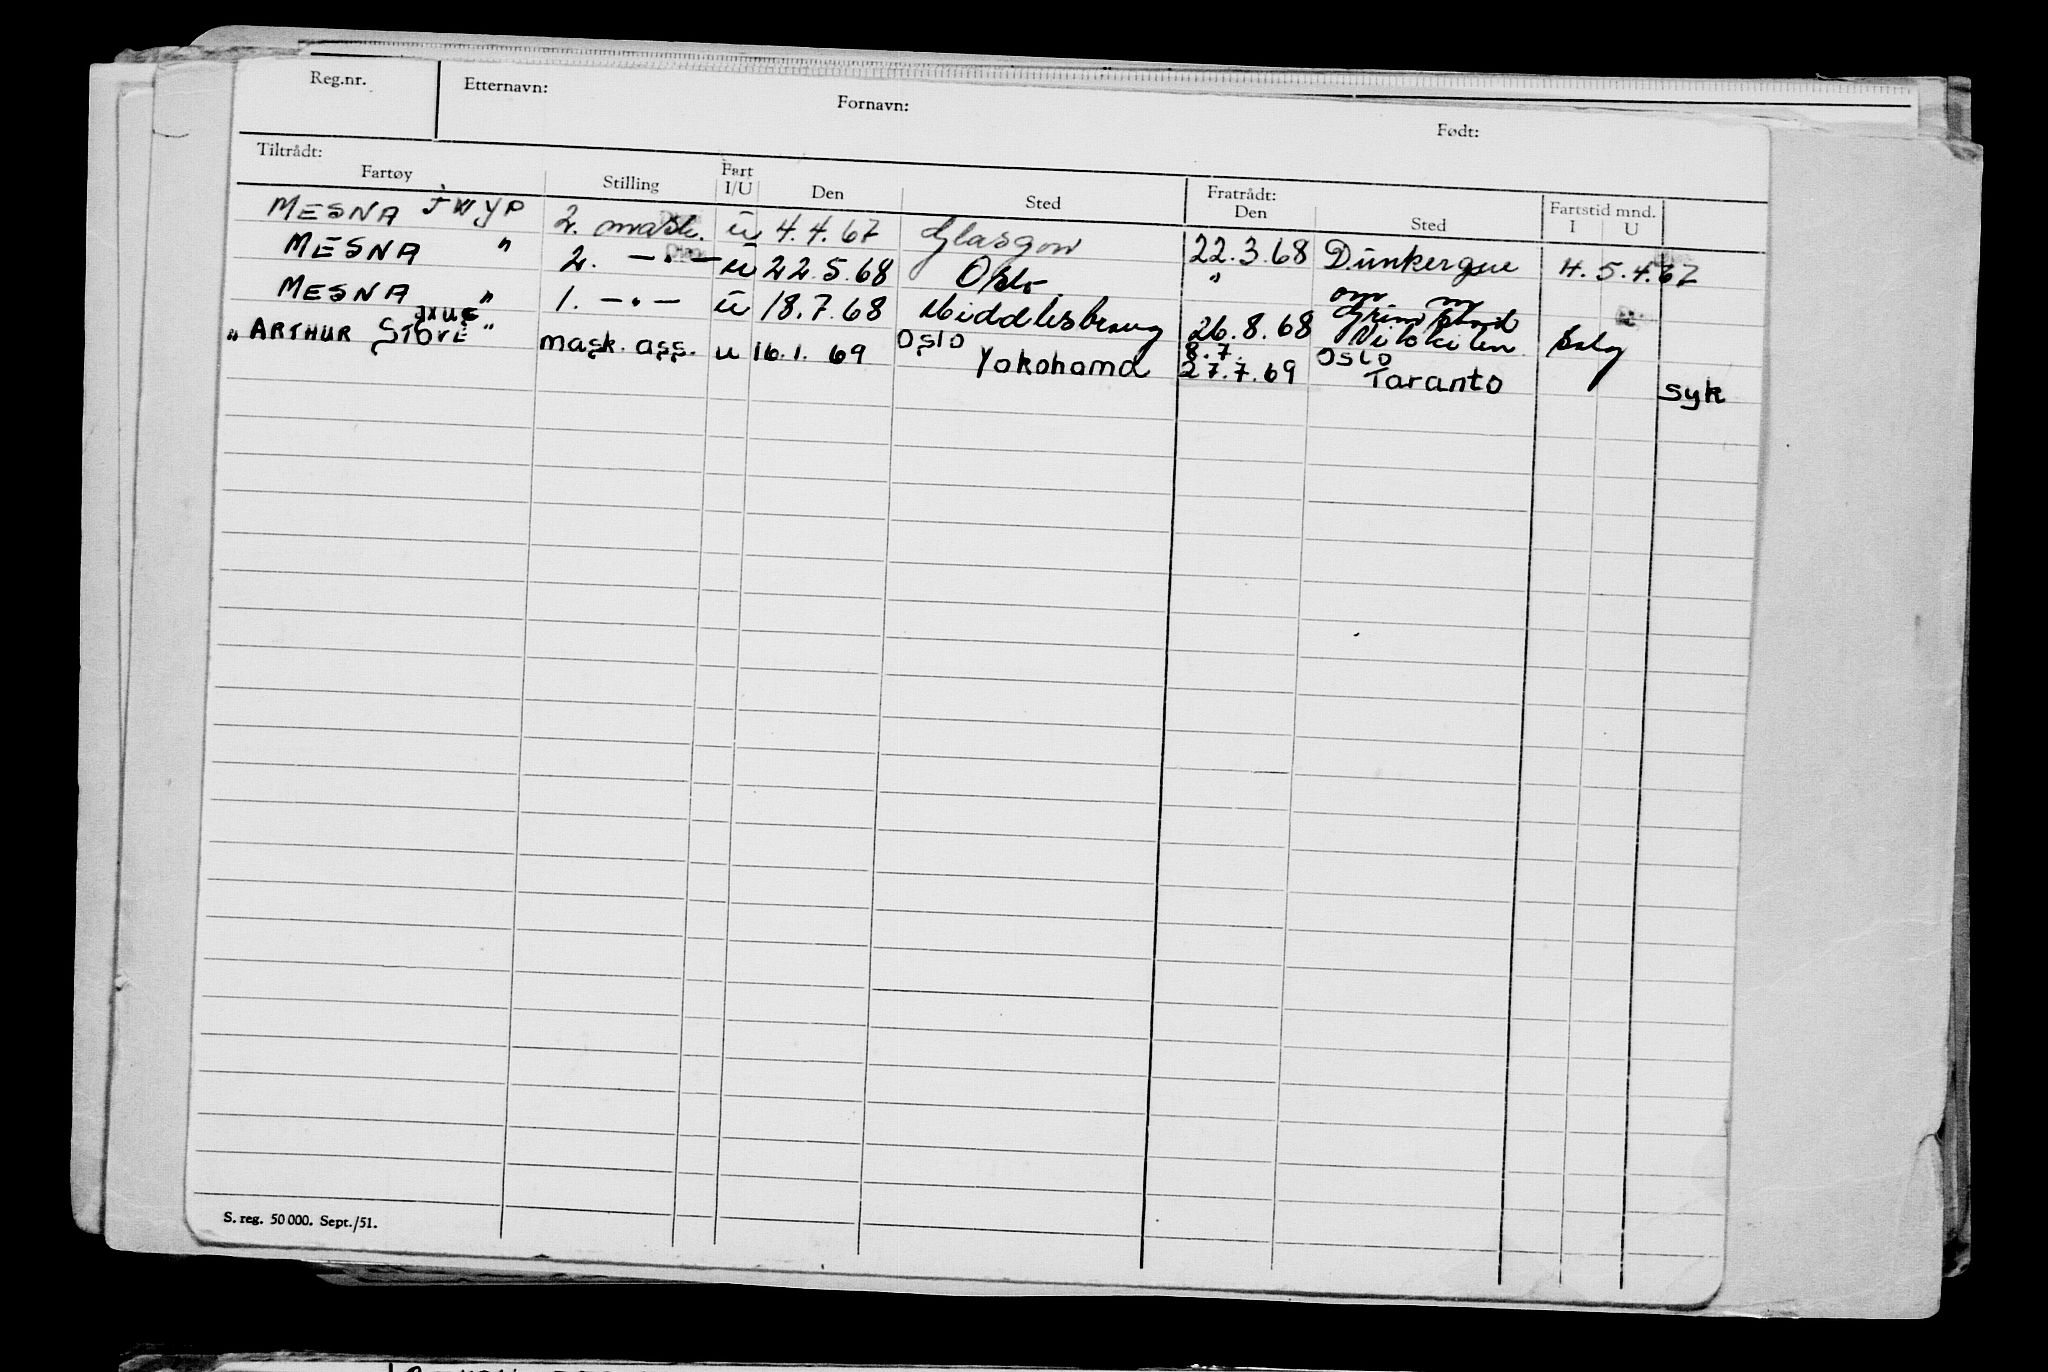 Reg.nr. Etternavn: Fornavn: Født:
Tiltrådt: Fratrådt:
Fartøy Stilling Fart I/U Den Sted Den Sted Fartstid mnd. I U
MESNA JWYP 2. mask. ü 4.4.67 Glasgow 22.3.68 Dünkerque H. 5.4.67
MESNA " 2. —"— ü 22.5.68 Oslo "
MESNA " 1. —"— ü 18.7.68 Middlesbroug 26.8.68 Grimstad Vikkilen Salg
JXUE
"ARTHUR STOVE" mask. ass. u 16.1.69 Oslo Yokohama 8.7. 27.7.69 Oslo Taranto syk
S. reg. 50 000. Sept./51.